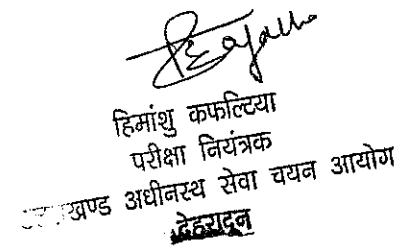 हिमांशु कफल्टिया
परीक्षा नियंत्रक
खण्ड अधीनस्थ सेवा चयन आयोग
देहरादून